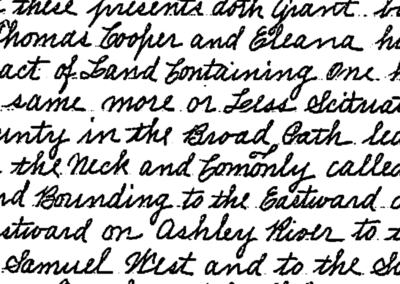 these presents doth Grant
Thomas Cooper and Eleana
act of Land Containing One
same more or Less Scituat
unty in the Broad Path lea
the Neck and Comonly calle
nd Bounding to the Eastward
stward on Ashley River to
Samuel West and to the So